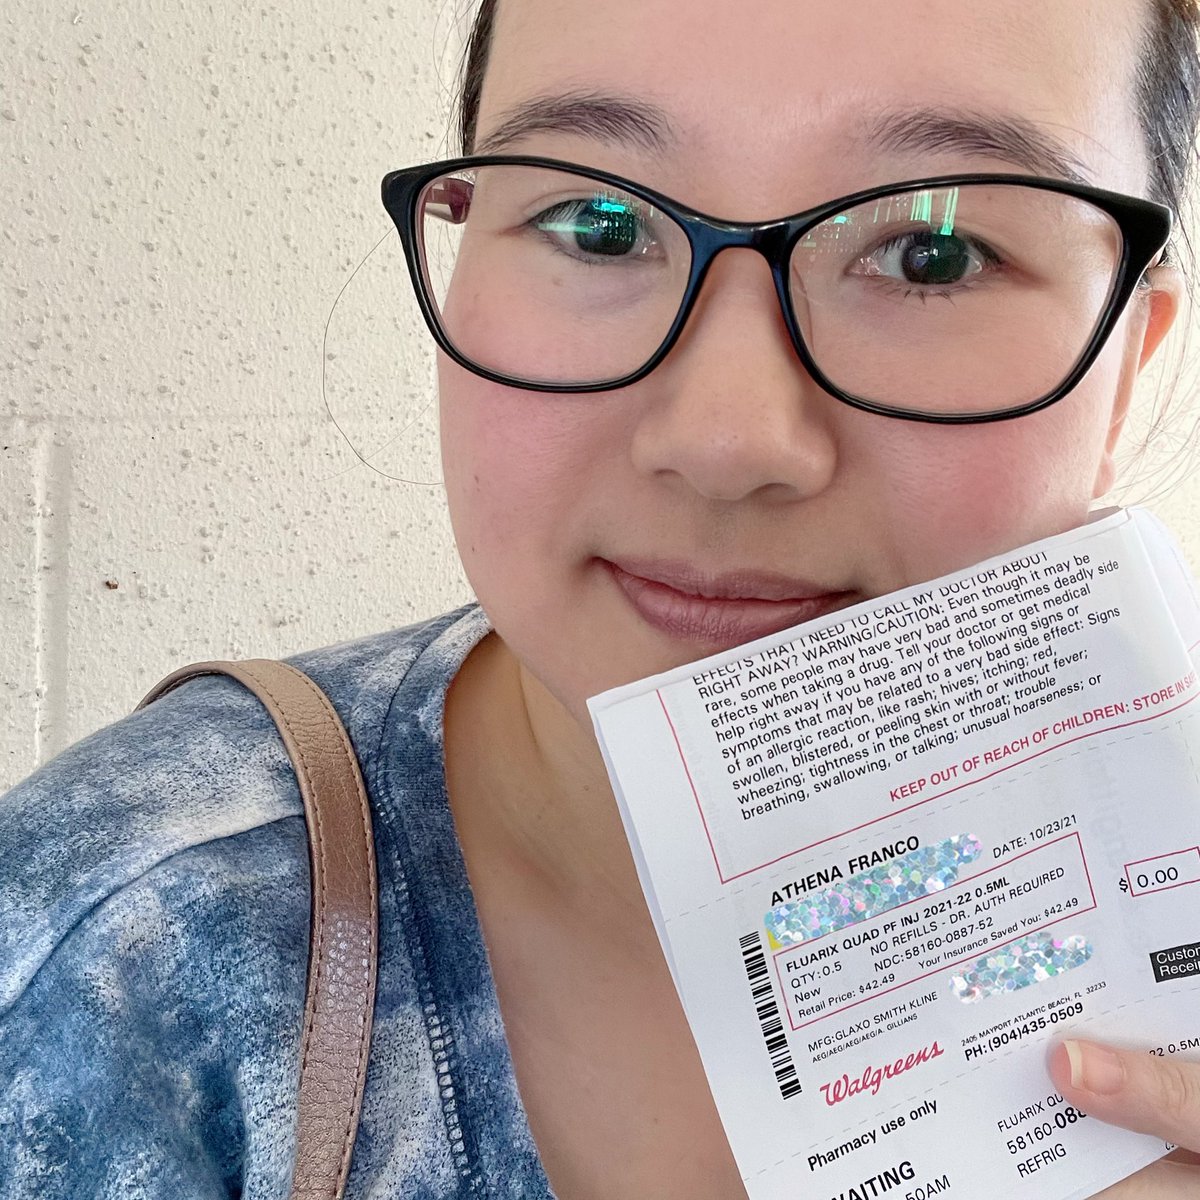 EFFECTS THAT I NEED TO CALL MY DOCTOR ABOUT
RIGHT AWAY? WARNING/CAUTION: Even though it may be
rare, some people may have very bad and sometimes deadly side
effects when taking a drug. Tell your doctor or get medical
help right away if you have any of the following signs or
symptoms that may be related to a very bad side effect: Signs
of an allergic reaction, like rash; hives; itching; red,
swollen, blistered, or peeling skin with or without fever;
wheezing; tightness in the chest or throat; trouble
breathing, swallowing, or talking; unusual hoarseness; or
KEEP OUT OF REACH OF CHILDREN: STORE IN
ATHENA FRANCO
DATE: 10/23/21
FLUARIX QUAD PF INJ 2021-22 0.5ML
QTY: 0.5 NO REFILLS - DR. AUTH REQUIRED
New NDC: 58160-0887-52
Retail Price: $42.49 Your Insurance Saved You: $42.49
$ 0.00
MFG: GLAXO SMITH KLINE
AEG/AEG/AEG/AEG/A. GILLIANS
Walgreens
2405 MAYPORT ATLANTIC BEACH, FL 32233
PH: (904)435-0509
Pharmacy use only
FLUARIX
58160-
REFRIG